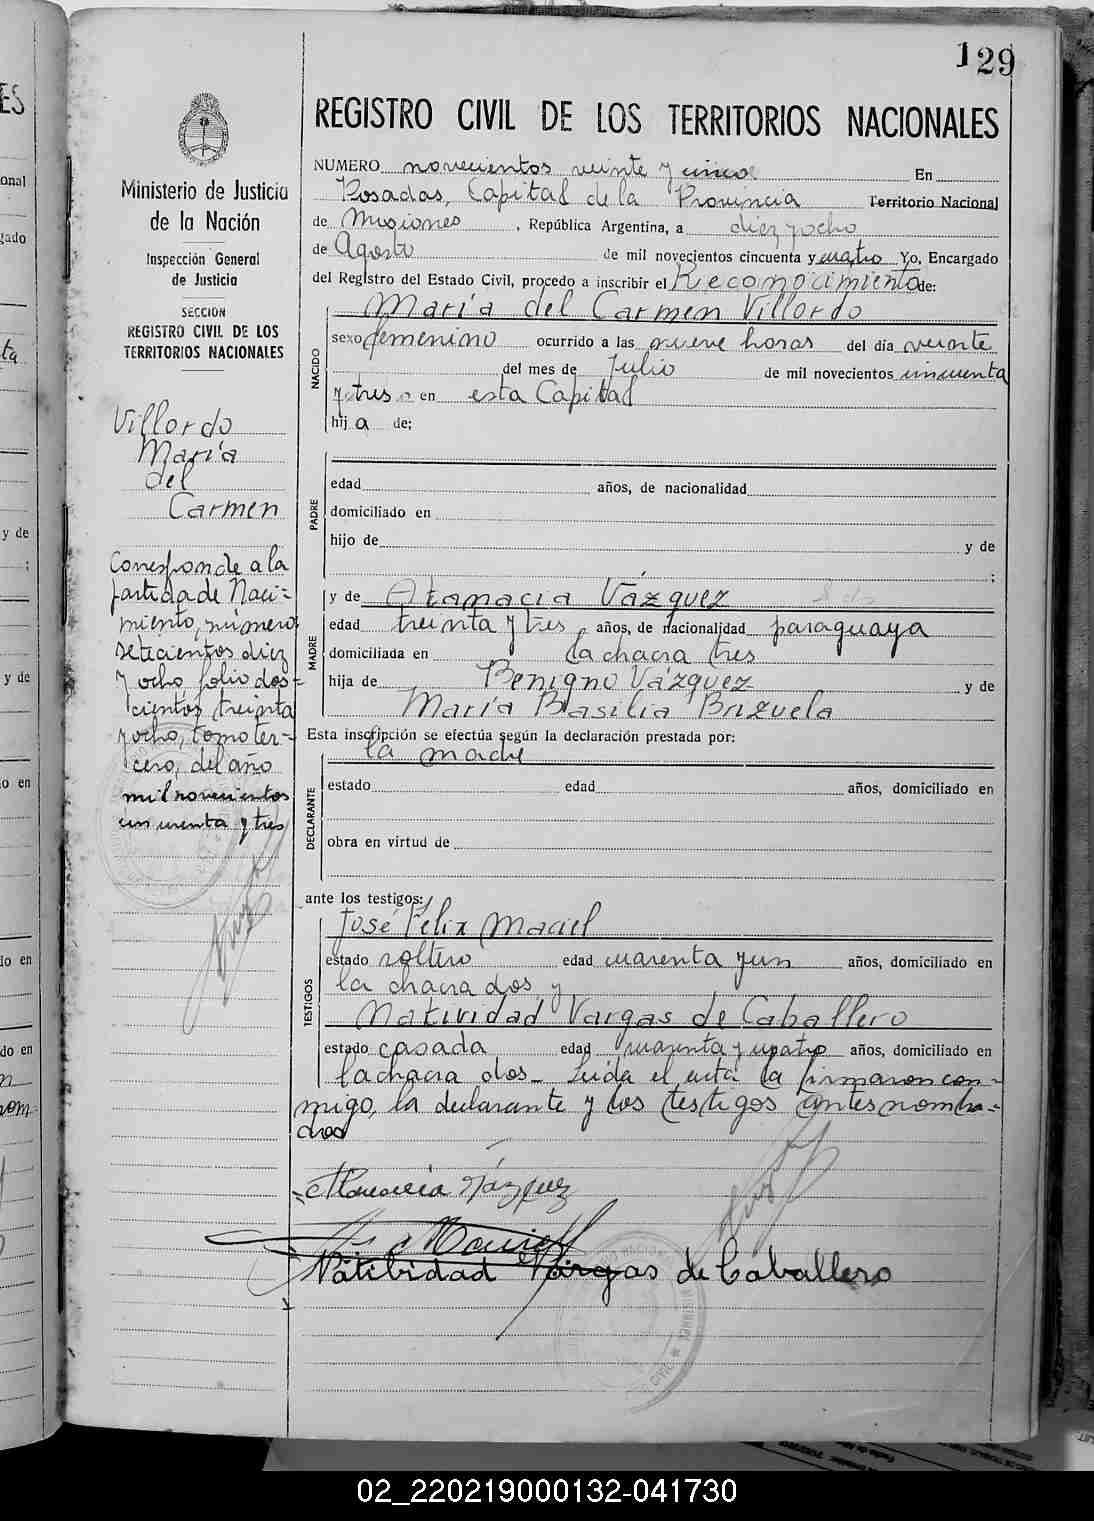 129
REGISTRO CIVIL DE LOS TERRITORIOS NACIONALES
Ministerio de Justicia
de la Nación
Inspección General
de Justicia
SECCIÓN
REGISTRO CIVIL DE LOS
TERRITORIOS NACIONALES
Villordo
María
del
Carmen
Corresponde a la
partida de Naci=
miento, número
setecientos diez
y ocho folio dos=
cientos treinta
y ocho, tomo ter-
cero, del año
mil novecientos
cincuenta y tres
NUMERO novecientos veinte y cinco En
Posadas, Capital de la Provincia Territorio Nacional
de Misiones, República Argentina, a diez y ocho
de Agosto de mil novecientos cincuenta y cuatro Yo, Encargado
del Registro del Estado Civil, procedo a inscribir el Reconocimiento de:
NACIDO
María del Carmen Villordo
sexo femenino ocurrido a las nueve horas del día veinte
del mes de Julio de mil novecientos cincuenta
y tres en esta Capital
hija de;
PADRE
edad años, de nacionalidad
domiciliado en
hijo de y de
;
MADRE
y de Atanacia Vázquez
edad treinta y tres años, de nacionalidad paraguaya
domiciliada en la chacra tres
hija de Benigno Vázquez y de
María Basilia Brizuela
Esta inscripción se efectúa según la declaración prestada por:
la madre
DECLARANTE
estado edad años, domiciliado en
obra en virtud de
ante los testigos:
TESTIGOS
José Felix Maciel
estado soltero edad cuarenta y un años, domiciliado en
la chacra dos y
Natividad Vargas de Caballero
estado casada edad cuarenta y cuatro años, domiciliado en
la chacra dos_ Leida el acta la firmaron con-
migo, la declarante y los testigos antes nombra=
dos
Atanacia Vázquez
Maciel
Natibidad Vargas de Caballero
02_220219000132-041730